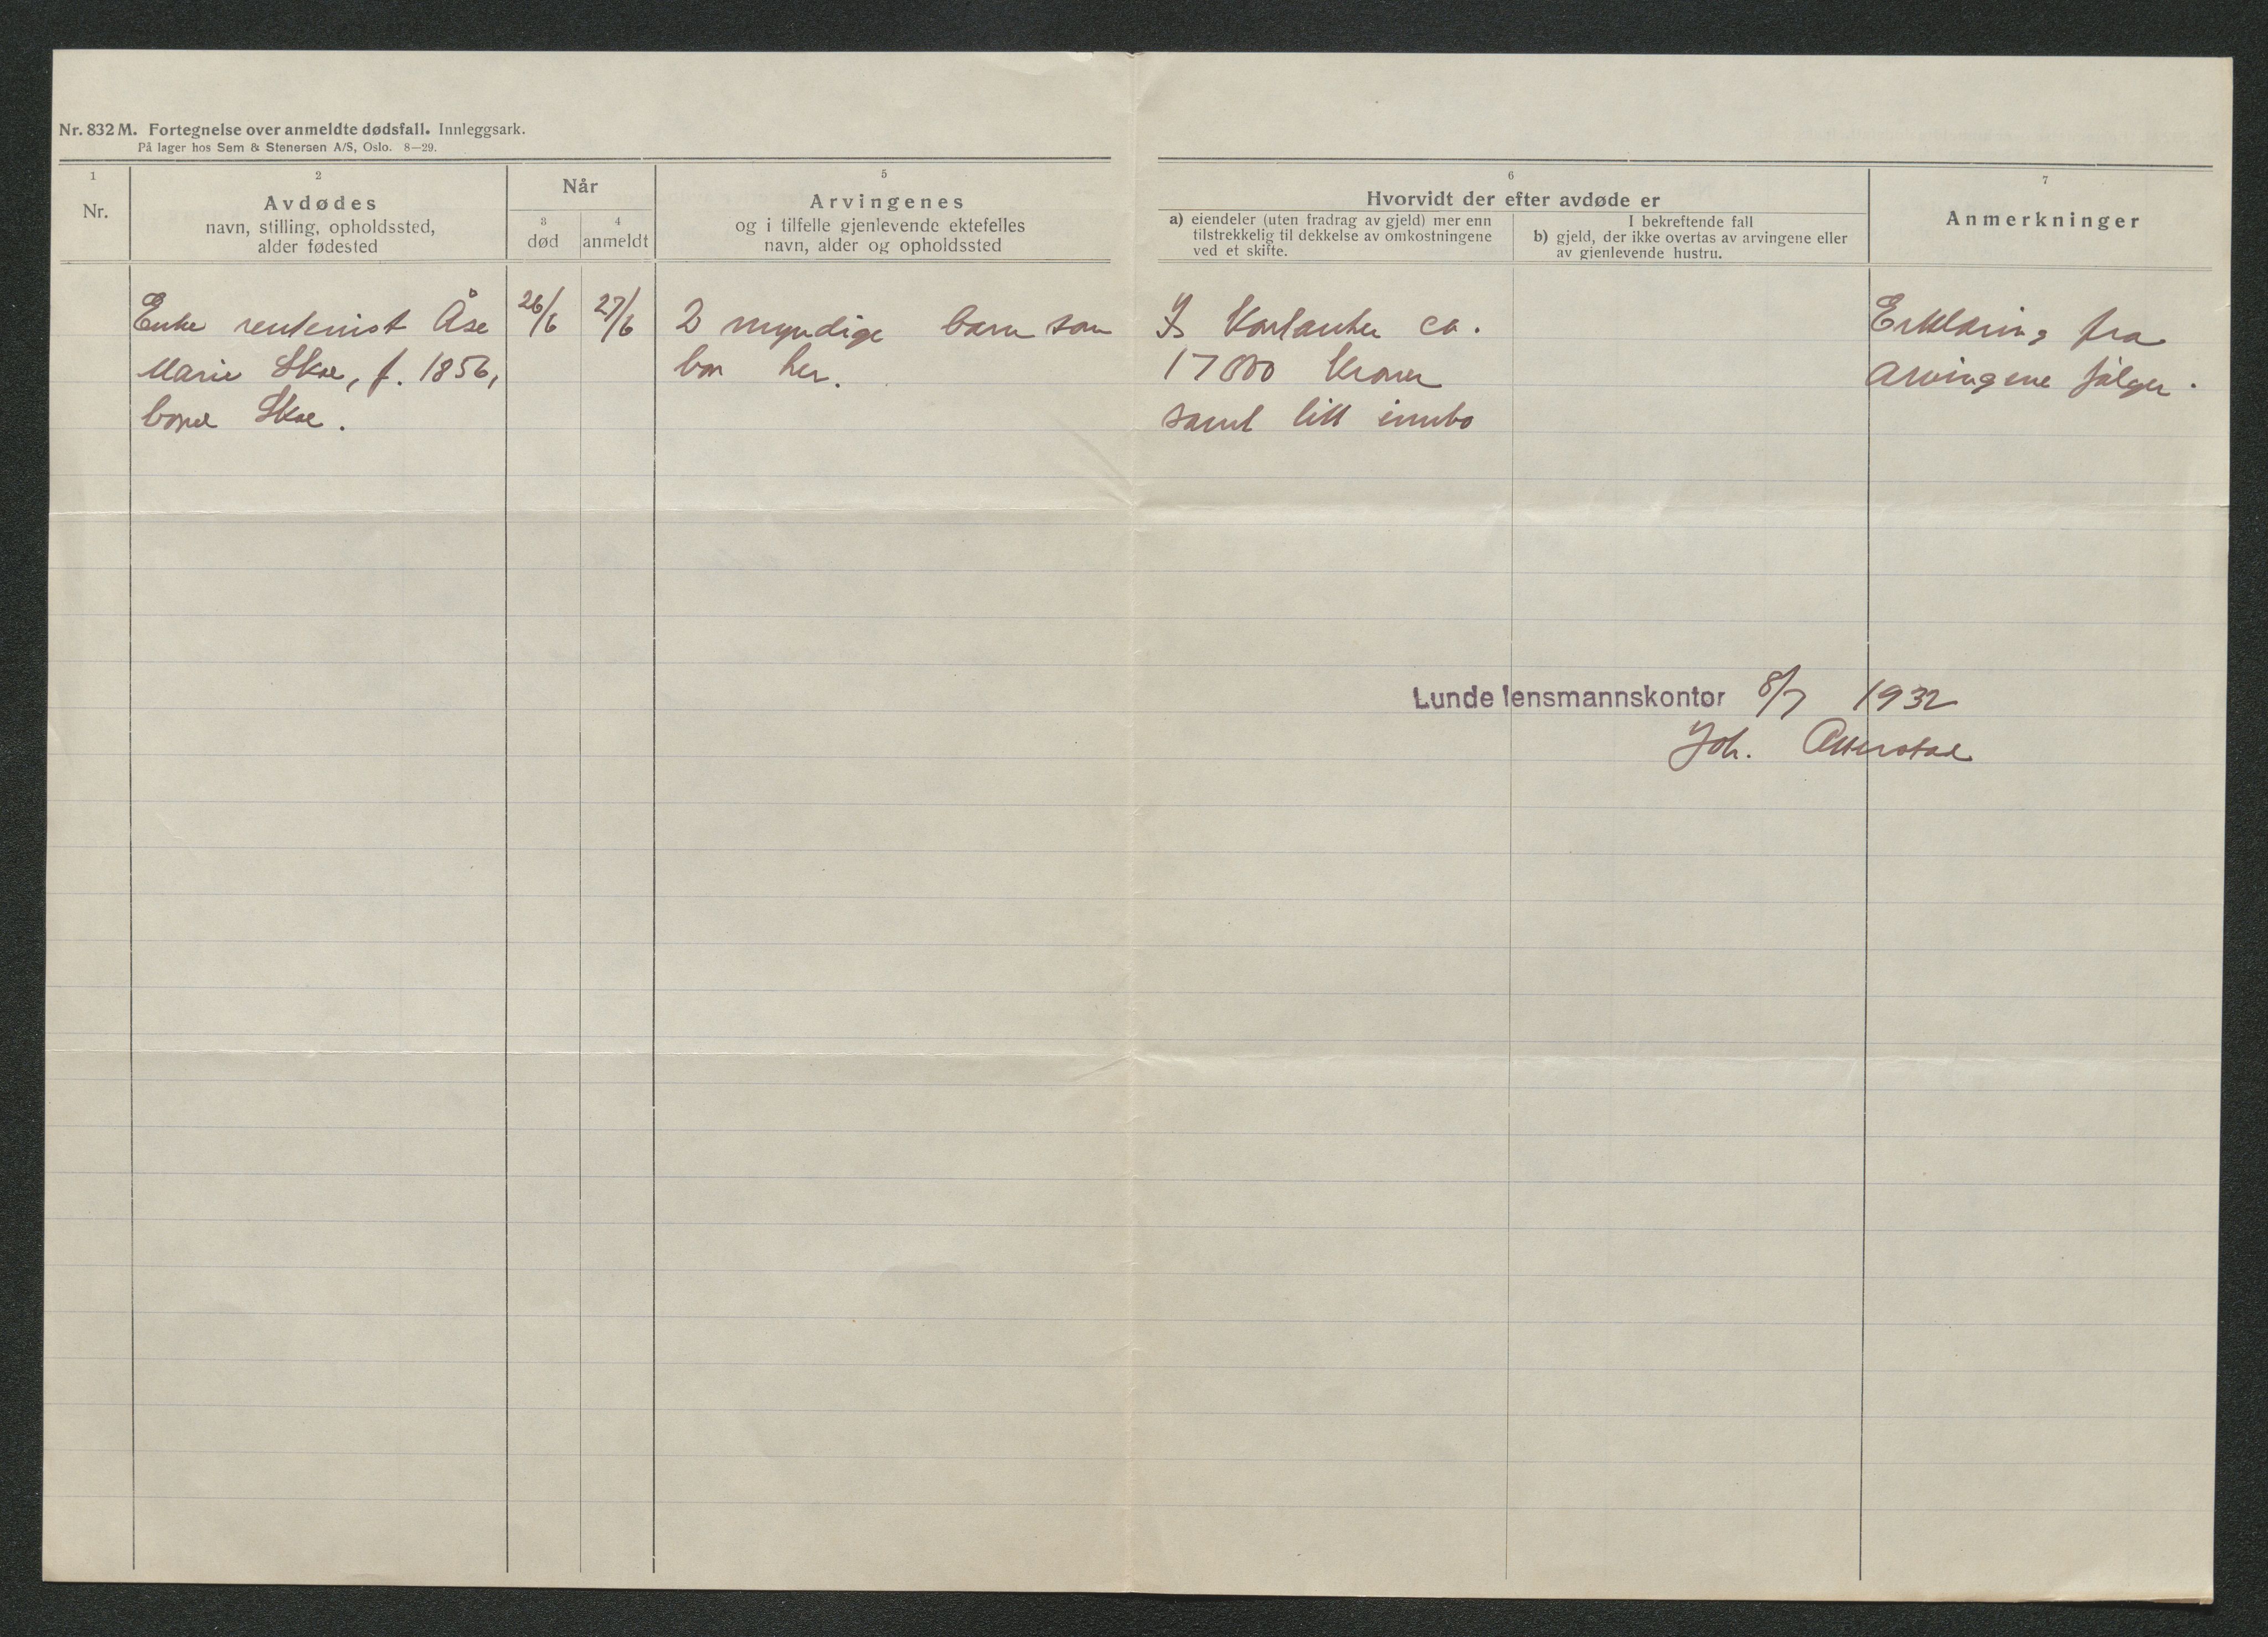 Nr. 832 M. Fortegnelse over anmeldte dødsfall. Innleggsark.
På lager hos Sem & Stenersen A/S, Oslo. 8—29.
1
Nr.
2
Avdødes
navn, stilling, opholdssted,
alder fødested
Når
3
død
4
anmeldt
5
Arvingenes
og i tilfelle gjenlevende ektefelles
navn, alder og opholdssted
6
Hvorvidt der efter avdøde er
a) eiendeler (uten fradrag av gjeld) mer enn
tilstrekkelig til dekkelse av omkostningene
ved et skifte.
I bekreftende fall
b) gjeld, der ikke overtas av arvingene eller
av gjenlevende hustru.
7
Anmerkninger
Enke rentenist Åse
Marie Skoe, f. 1856,
bopel Skoe.
26/6
27/6
2 myndige barn som
bor her.
Ja Kontanter ca.
17000 kroner
samt litt innbo
Erklæring fra
arvingene følger.
Lunde lensmannskontor 8/7 1932
Joh.